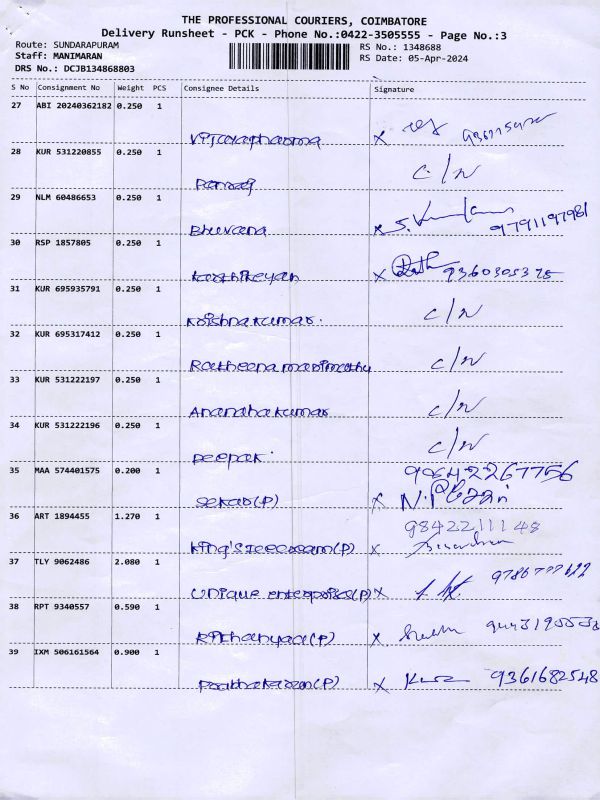 THE PROFESSIONAL COURIERS, COIMBATORE
Delivery Runsheet - PCK - Phone No.:0422-3505555 - Page No.:3
Route: SUNDARAPURAM RS No.: 1348688
Staff: MANIMARAN RS Date: 05-Apr-2024
DRS No.: DCJB134868803
S No Consignment No Weight PCS Consignee Details Signature
27 ABI 20240362182 0.250 1
Vijayapharma x
28 KUR 531220855 0.250 1 C/N
29 NLM 60486653 0.250 1
Bhuvana x S. 9791197981
30 RSP 1857805 0.250 1
Karthikeyan x 9360305375
31 KUR 695935791 0.250 1
Krishnakumar. C/N
32 KUR 695317412 0.250 1
Ratheena marimuthu C/N
33 KUR 531222197 0.250 1
Anandhakumar C/N
34 KUR 531222196 0.250 1
Deepak. C/N
35 MAA 574401575 0.200 1 9842267756
Sekar(P) x
36 ART 1894455 1.270 1 9842211148
King's Icecream(P) x
37 TLY 9062486 2.080 1
Unique enterprises(P) x
38 RPT 9340557 0.590 1
Rithanyaa(P) x
39 IXM 506161564 0.900 1
Prabhakaran(P) x 9361682548